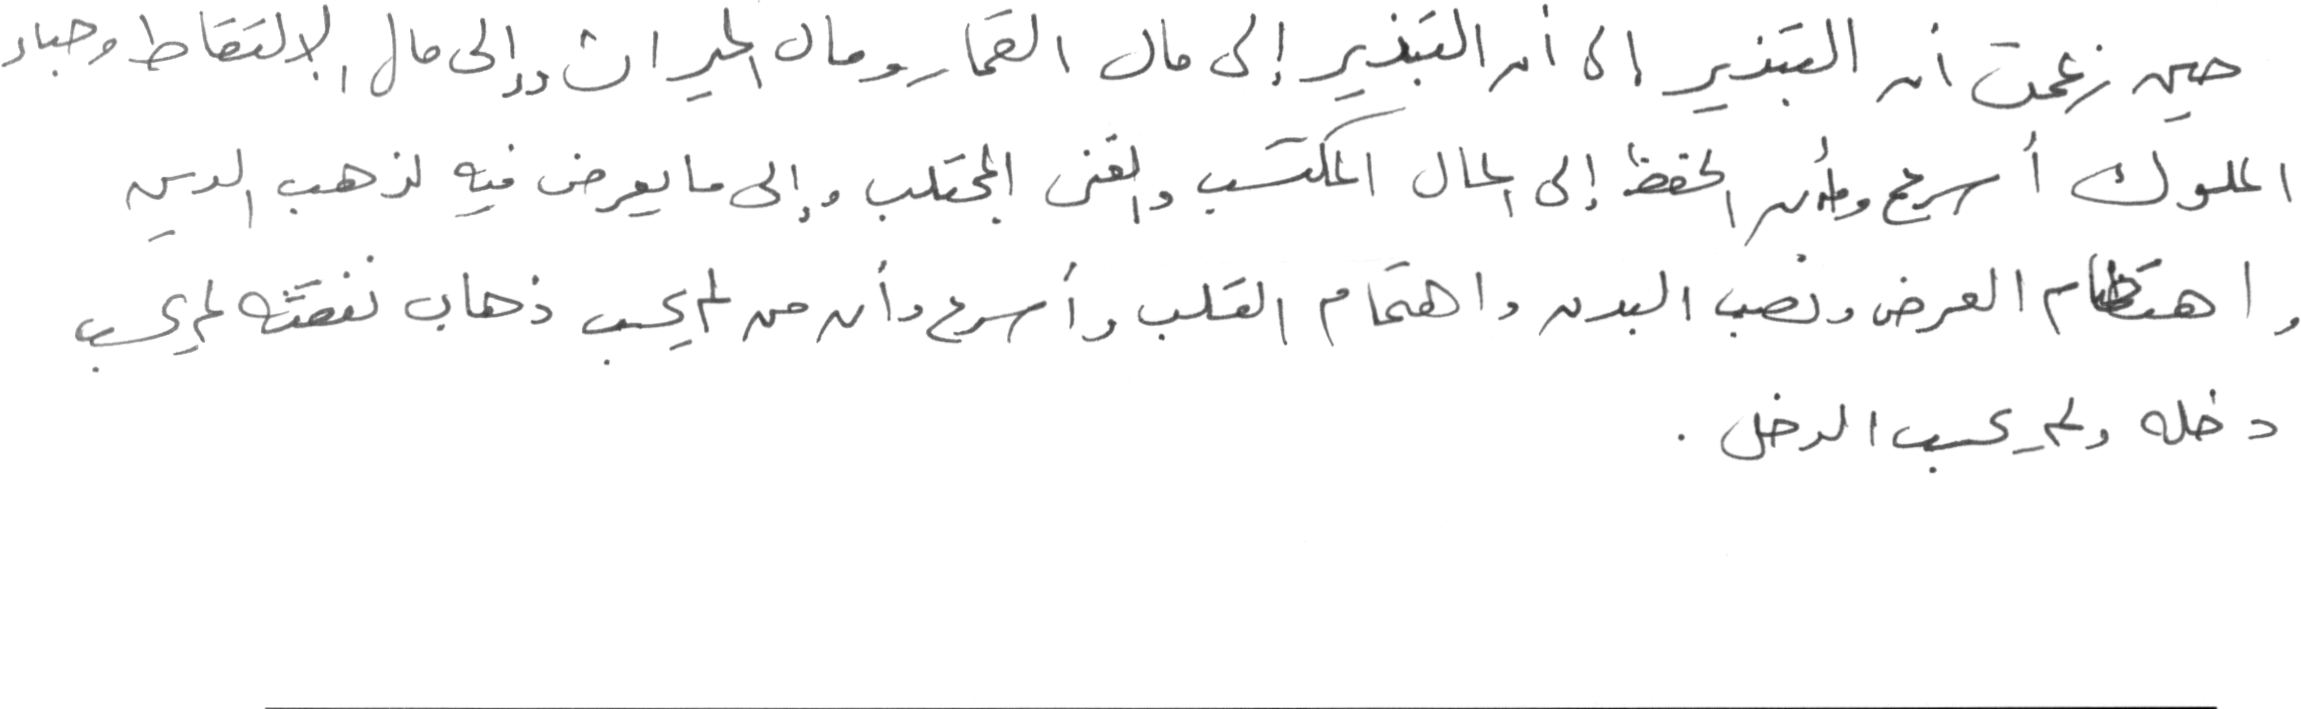 حين زعمت أن التبذير إلى أن التبذير إلى مال القمار ومال الميراث وإلى مال الالتقاط وحباء
الملوك أسرع وأن الحفظ إلى المال المكتسب والغنى المجتلب وإلى ما يعرض فيه لذهب الدين
واهتضام العرض ونصب البدن واهتمام القلب وأسرع وأن من لم يحسب ذهاب نفقته لم يحسب
دخله ولم يحسب الدخل .